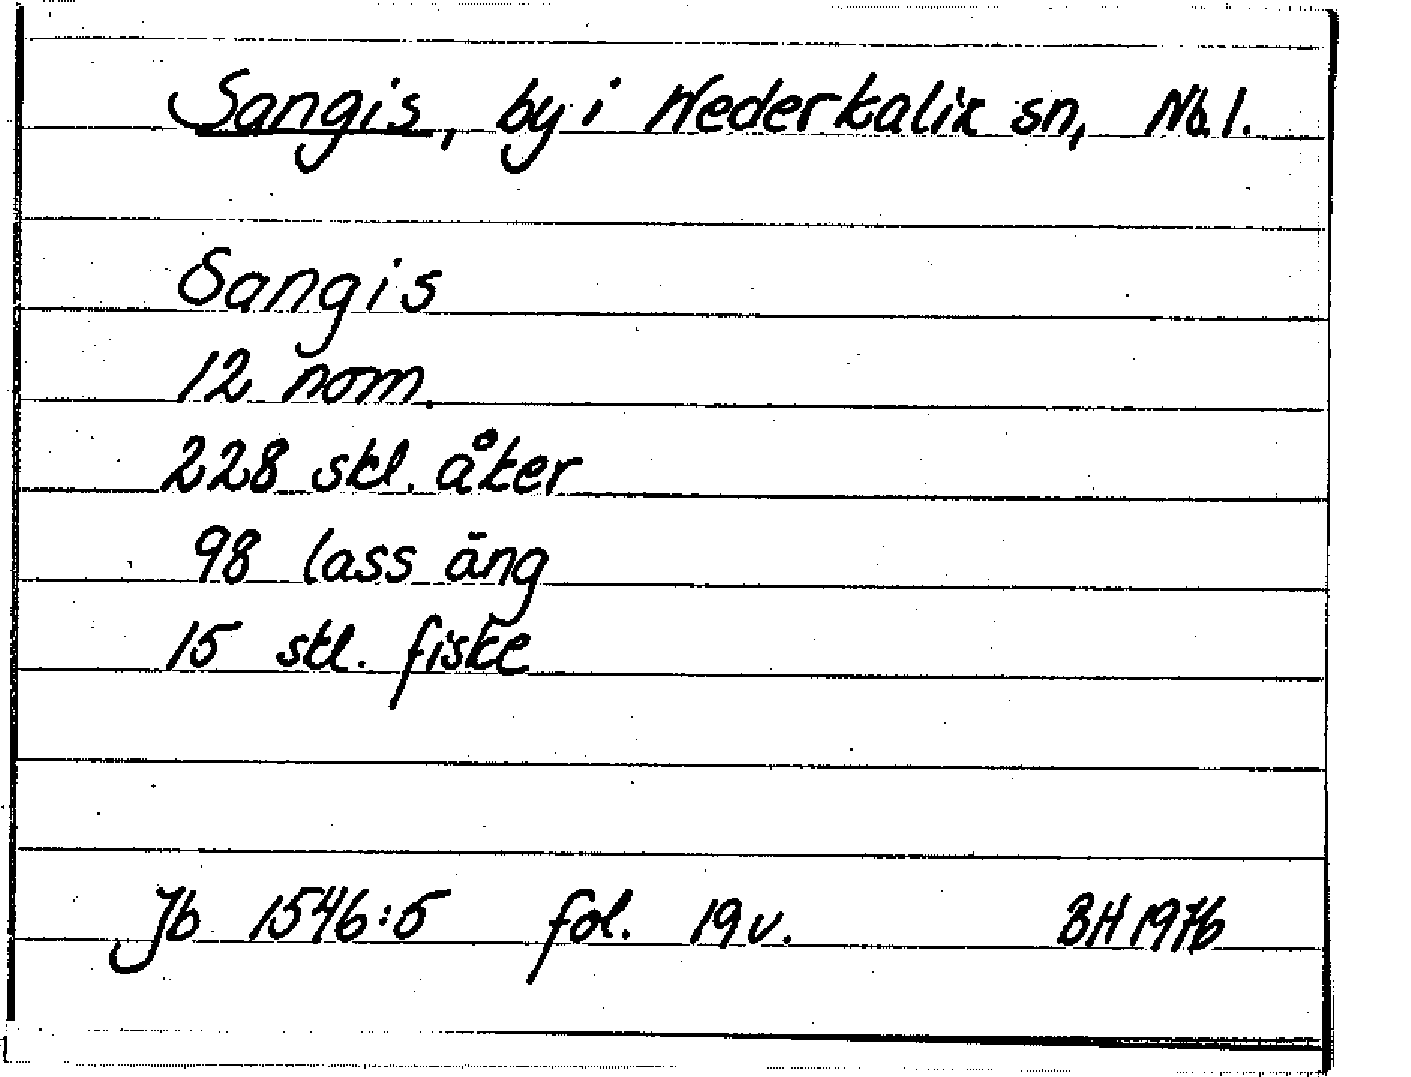 Sangis, by i Nederkalix sn, Nb.l.
Sangis
12 nom.
228 skl. åker
98 lass äng
15 skl. fiske
Jb 1546:5 fol. 19 v. BH 1976